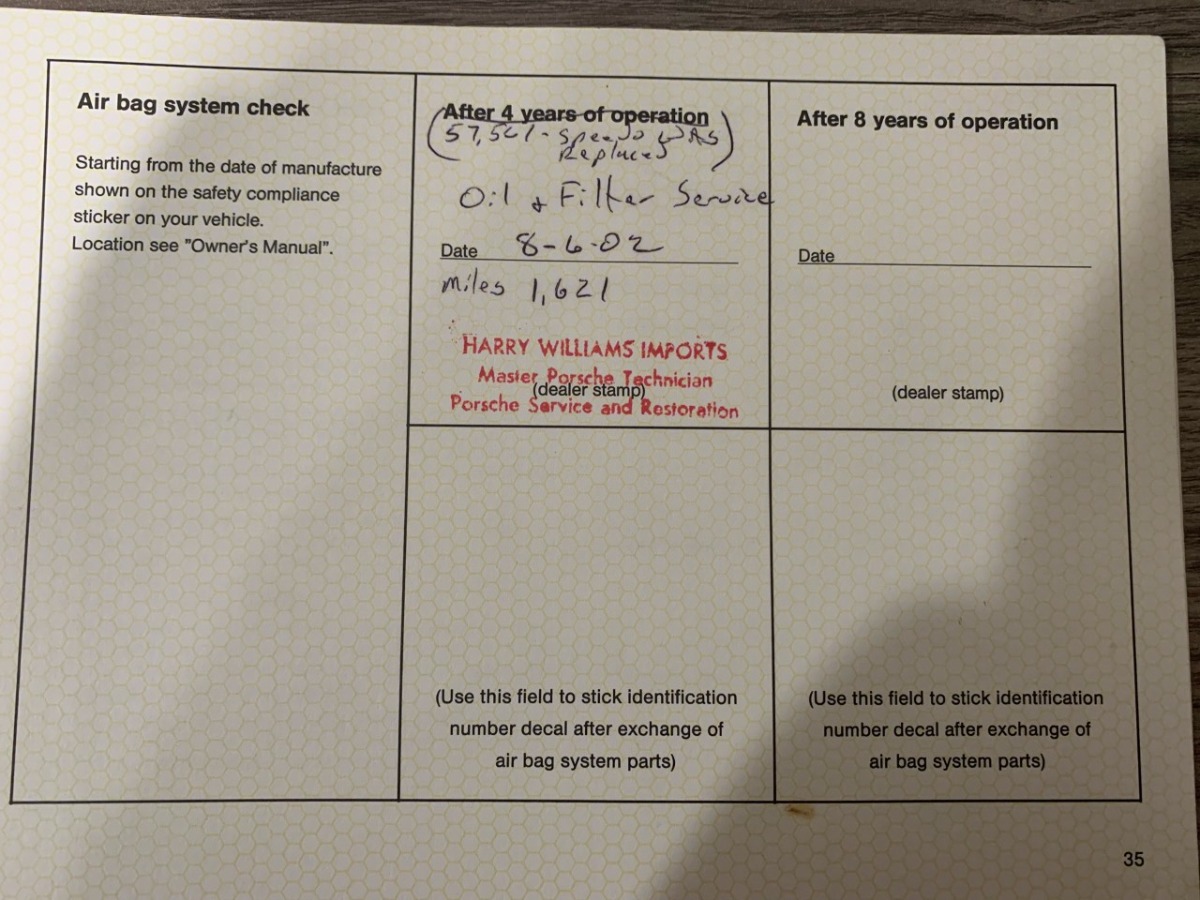 Air bag system check
Starting from the date of manufacture
shown on the safety compliance
sticker on your vehicle.
Location see "Owner's Manual".
After 4 years of operation
(57,561 - Speedo WAS
Replaced)
Oil & Filter Service
Date 8-6-02
miles 1,621
HARRY WILLIAMS IMPORTS
Master Porsche Technician
(dealer stamp)
Porsche Service and Restoration
(Use this field to stick identification
number decal after exchange of
air bag system parts)
After 8 years of operation
Date
(dealer stamp)
(Use this field to stick identification
number decal after exchange of
air bag system parts)
35